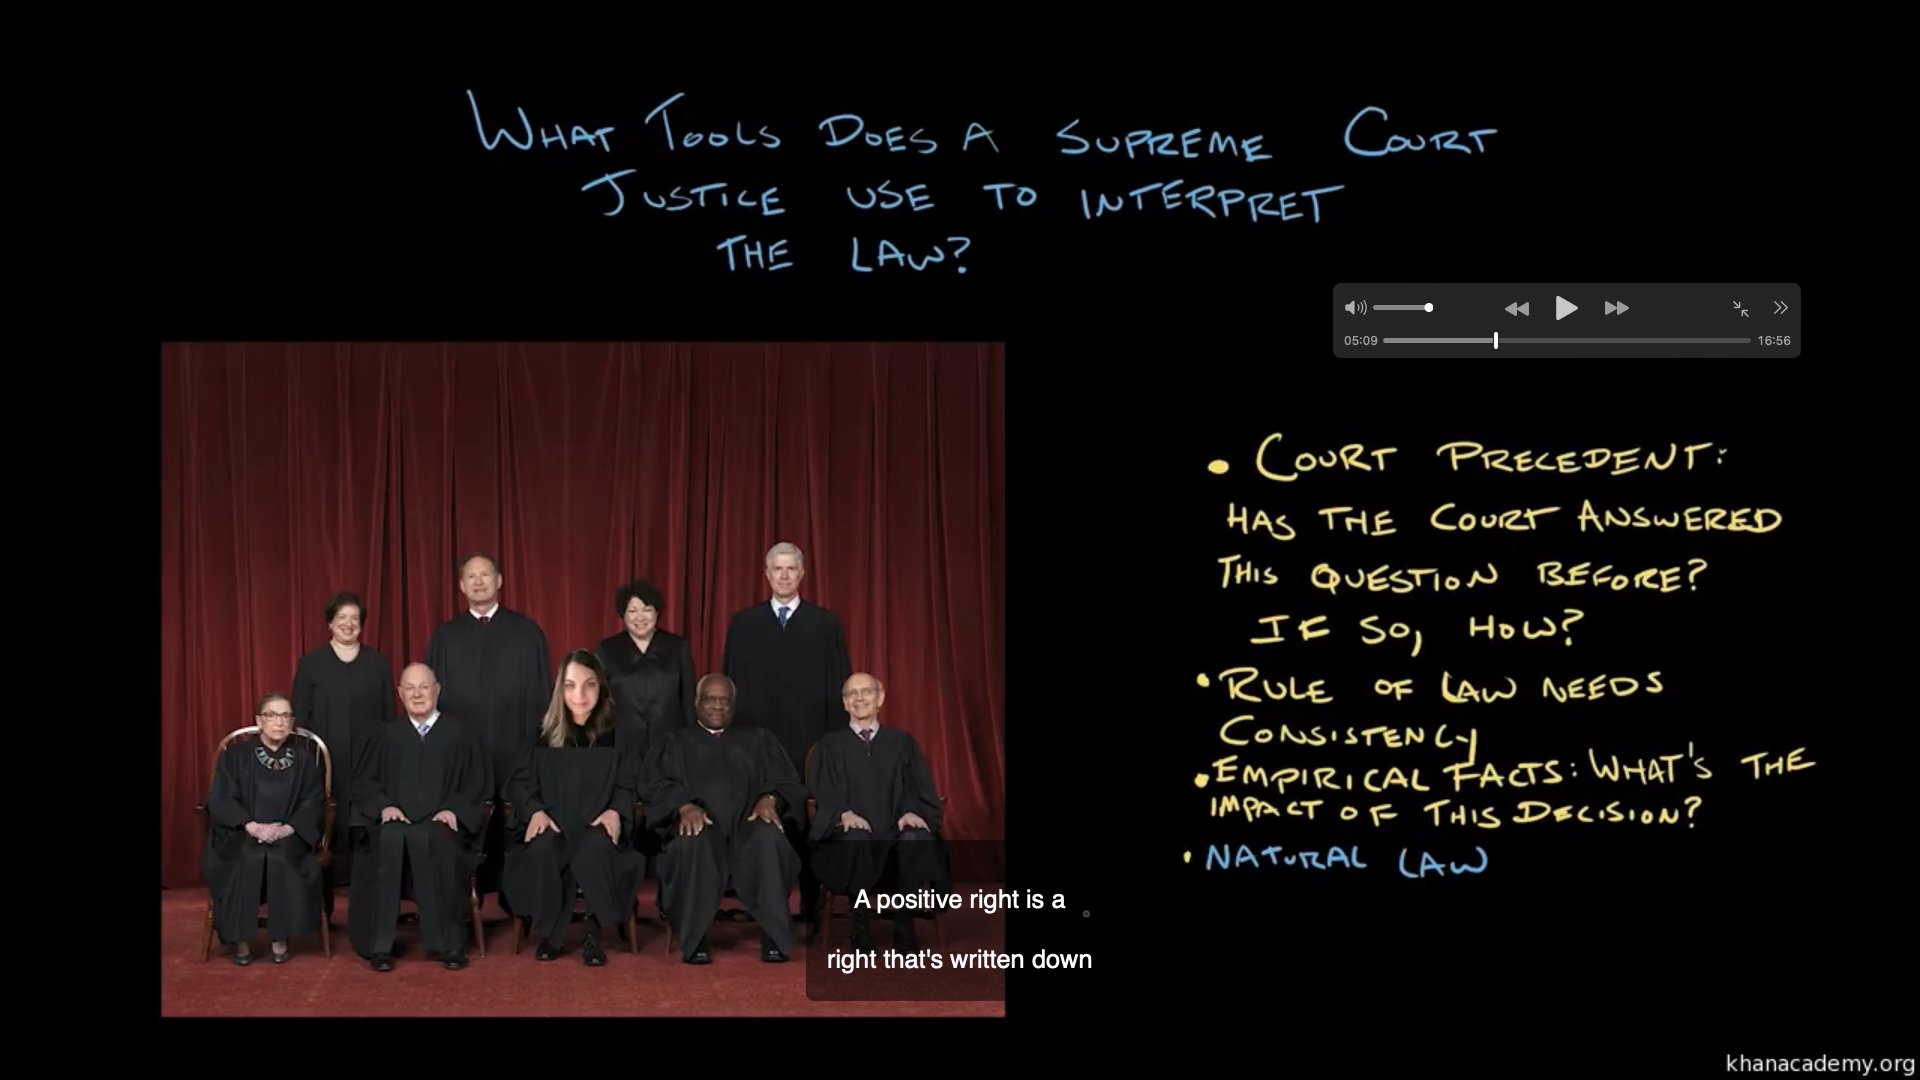 WHAT TOOLS DOES A SUPREME COURT
JUSTICE USE TO INTERPRET
THE LAW?
05:09
16:56
• COURT PRECEDENT:
HAS THE COURT ANSWERED
THIS QUESTION BEFORE?
IF SO, HOW?
• RULE OF LAW NEEDS
CONSISTENCY
• EMPIRICAL FACTS: WHAT'S THE
IMPACT OF THIS DECISION?
• NATURAL LAW
A positive right is a
right that's written down
khanacademy.org